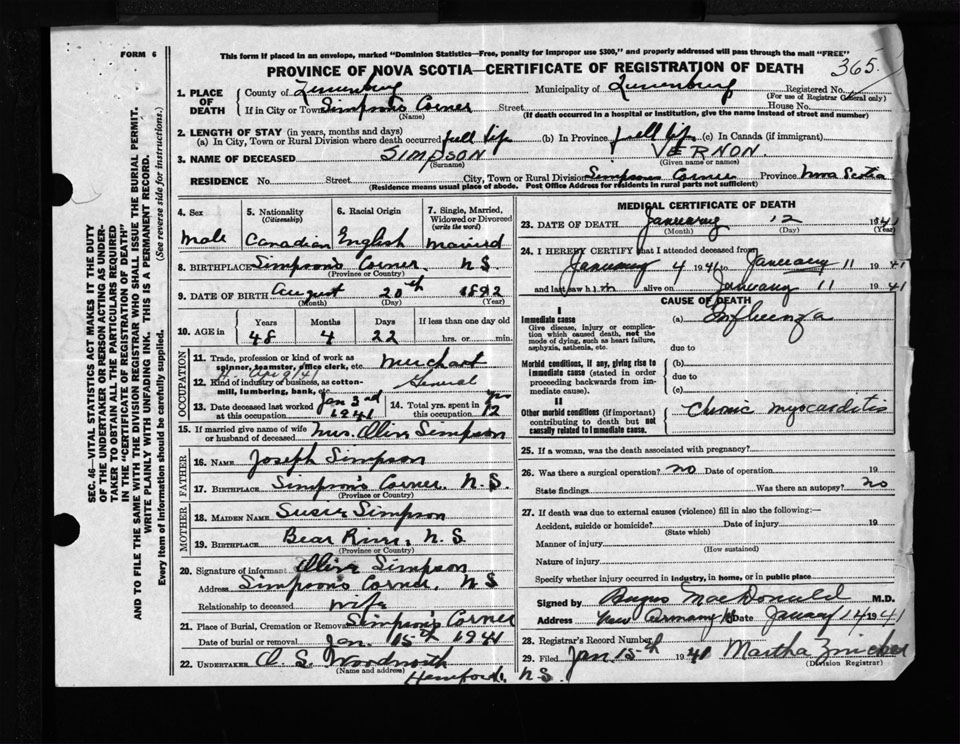 FORM 6
This form if placed in an envelope, marked "Dominion Statistics—Free, penalty for improper use $300," and properly addressed will pass through the mail "FREE"
PROVINCE OF NOVA SCOTIA—CERTIFICATE OF REGISTRATION OF DEATH
365
SEC. 46—VITAL STATISTICS ACT MAKES IT THE DUTY
OF THE UNDERTAKER OR PERSON ACTING AS UNDER-
TAKER TO OBTAIN ALL THE PARTICULARS REQUIRED
IN THE "CERTIFICATE OF REGISTRATION OF DEATH"
AND TO FILE THE SAME WITH THE DIVISION REGISTRAR WHO SHALL ISSUE THE BURIAL PERMIT.
WRITE PLAINLY WITH UNFADING INK. THIS IS A PERMANENT RECORD.
Every item of information should be carefully supplied. (See reverse side for instructions.)
1. PLACE OF DEATH County of Lunenburg Municipality of Lunenburg Registered No.
(For use of Registrar General only)
If in City or Town Simpson's Corner Street House No.
(Name) (If death occurred in a hospital or institution, give the name instead of street and number)
2. LENGTH OF STAY (in years, months and days)
(a) In City, Town or Rural Division where death occurred full life (b) In Province full life (c) In Canada (if immigrant)
3. NAME OF DECEASED SIMPSON VERNON
(Surname) (Given name or names)
RESIDENCE No. Street City, Town or Rural Division Simpsons Corner Province Nova Scotia
(Residence means usual place of abode. Post Office Address for residents in rural parts not sufficient)
4. Sex
Male
5. Nationality
(Citizenship)
Canadian
6. Racial Origin
English
7. Single, Married,
Widowed or Divorced
(write the word)
Married
8. BIRTHPLACE Simpson's Corner N.S.
(Province or Country)
9. DATE OF BIRTH August 20th 1892
(Month) (Day) (Year)
10. AGE in Years Months Days If less than one day old
48 4 22 hrs. or min.
OCCUPATION
11. Trade, profession or kind of work as
spinner, teamster, office clerk, etc. Merchant
12. Kind of industry or business, as cotton-
mill, lumbering, bank, etc. General
13. Date deceased last worked
at this occupation Jan 3rd 1941
14. Total yrs. spent in
this occupation 12 yrs
15. If married give name of wife
or husband of deceased Mrs. Olive Simpson
FATHER
16. NAME Joseph Simpson
17. BIRTHPLACE Simpson's Corner, N.S.
(Province or Country)
MOTHER
18. MAIDEN NAME Susie Simpson
19. BIRTHPLACE Bear River, N.S.
(Province or Country)
20. Signature of informant Olive Simpson
Address Simpson's Corner, N.S
Relationship to deceased wife
21. Place of Burial, Cremation or Removal Simpson's Corner
Date of burial or removal Jan. 15th 1941
22. UNDERTAKER O. S. Woodworth
(Name and address) Hemford, N.S.
MEDICAL CERTIFICATE OF DEATH
23. DATE OF DEATH January 12 1941
(Month) (Day) (Year)
24. I HEREBY CERTIFY that I attended deceased from
January 4 1941 to January 11 1941
and last saw him alive on January 11 1941
CAUSE OF DEATH
I
Immediate cause (a) Influenza
Give disease, injury or complica-
tion which caused death, not the
mode of dying, such as heart failure,
asphyxia, asthenia, etc.
due to
Morbid conditions, if any, giving rise to
immediate cause (stated in order
proceeding backwards from im-
mediate cause).
(b)
due to
(c)
II
Other morbid conditions (if important)
contributing to death but not
causally related to immediate cause.
Chronic myocarditis
25. If a woman, was the death associated with pregnancy?
26. Was there a surgical operation? no Date of operation 19
State findings Was there an autopsy? no
27. If death was due to external causes (violence) fill in also the following:—
Accident, suicide or homicide? Date of injury 19
(State which)
Manner of injury
(How sustained)
Nature of injury
Specify whether injury occurred in industry, in home, or in public place
Signed by MacDonald M.D.
Address New Germany Date January 14 1941
28. Registrar's Record Number
29. Filed Jan. 15th 1941 Martha
(Division Registrar)